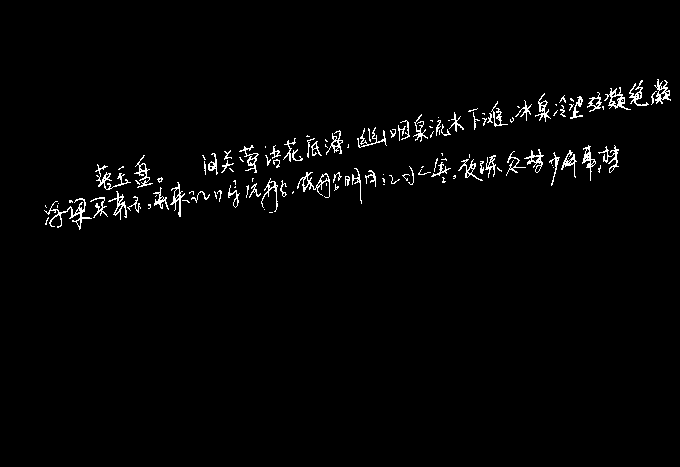 落玉盘。 间关莺语花底滑,幽咽泉流水下滩。冰泉冷涩弦凝绝,凝
浮梁买茶去。去来江口守空船,绕船明月江水寒。夜深忽梦少年事,梦